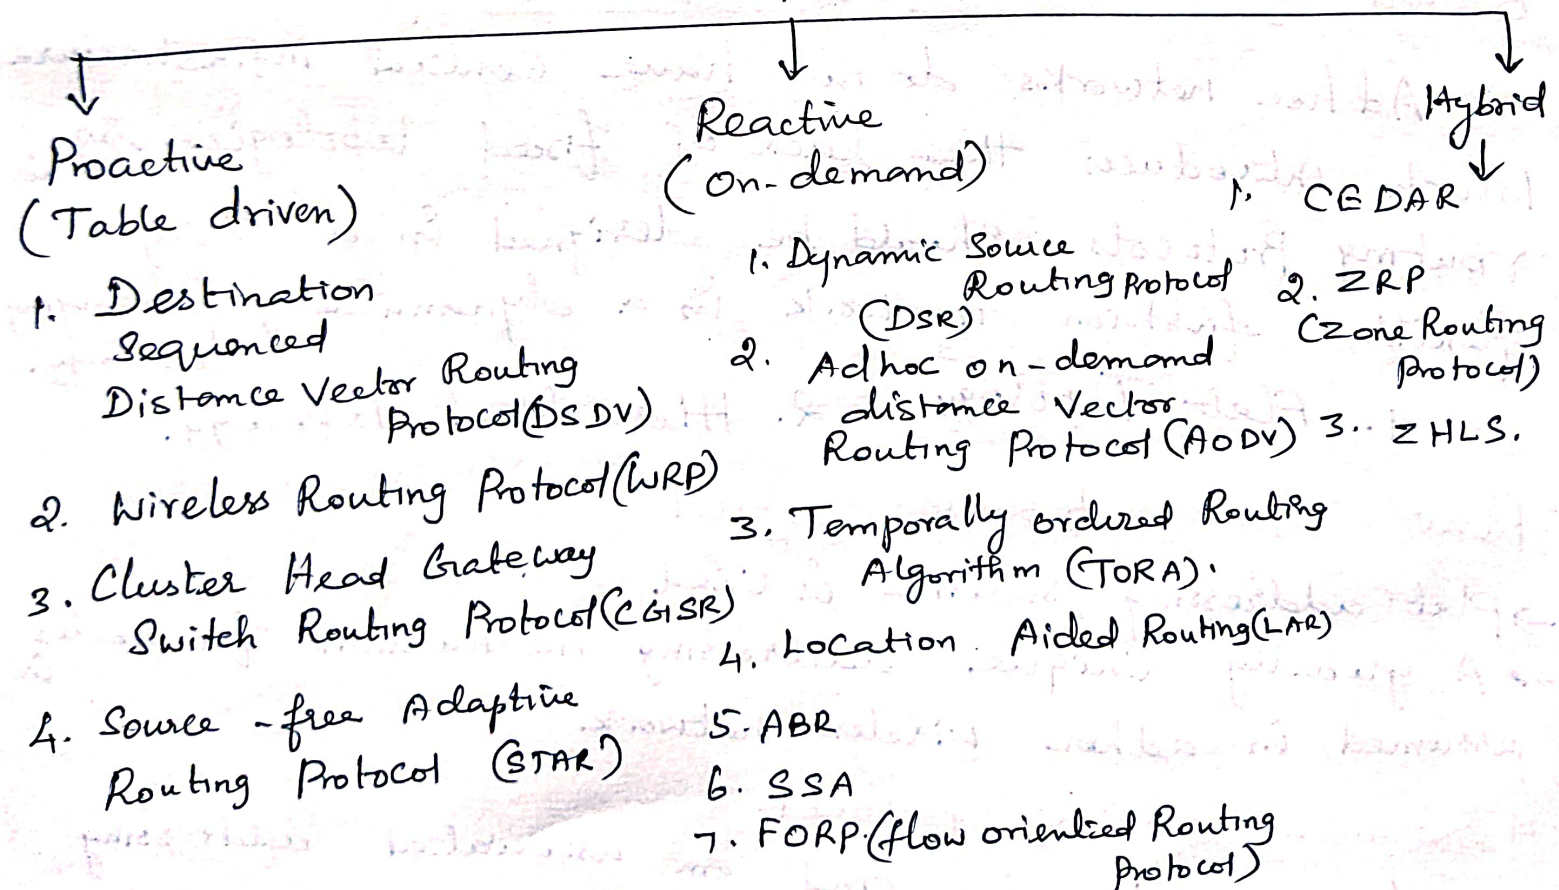 Proactive
(Table driven)
1. Destination
Sequenced
Distance Vector Routing
Protocol (DSDV)
2. Wireless Routing Protocol (WRP)
3. Cluster Head Gateway
Switch Routing Protocol (CGSR)
4. Source - free Adaptive
Routing Protocol (STAR)
Reactive
(On-demand)
1. Dynamic Source
Routing Protocol
(DSR)
2. Adhoc on-demand
distance Vector
Routing Protocol (AODV)
3. Temporally ordered Routing
Algorithm (TORA).
4. Location Aided Routing (LAR)
5. ABR
6. SSA
7. FORP. (flow oriented Routing
Protocol)
Hybrid
1. CEDAR
2. ZRP
(Zone Routing
Protocol)
3. ZHLS.